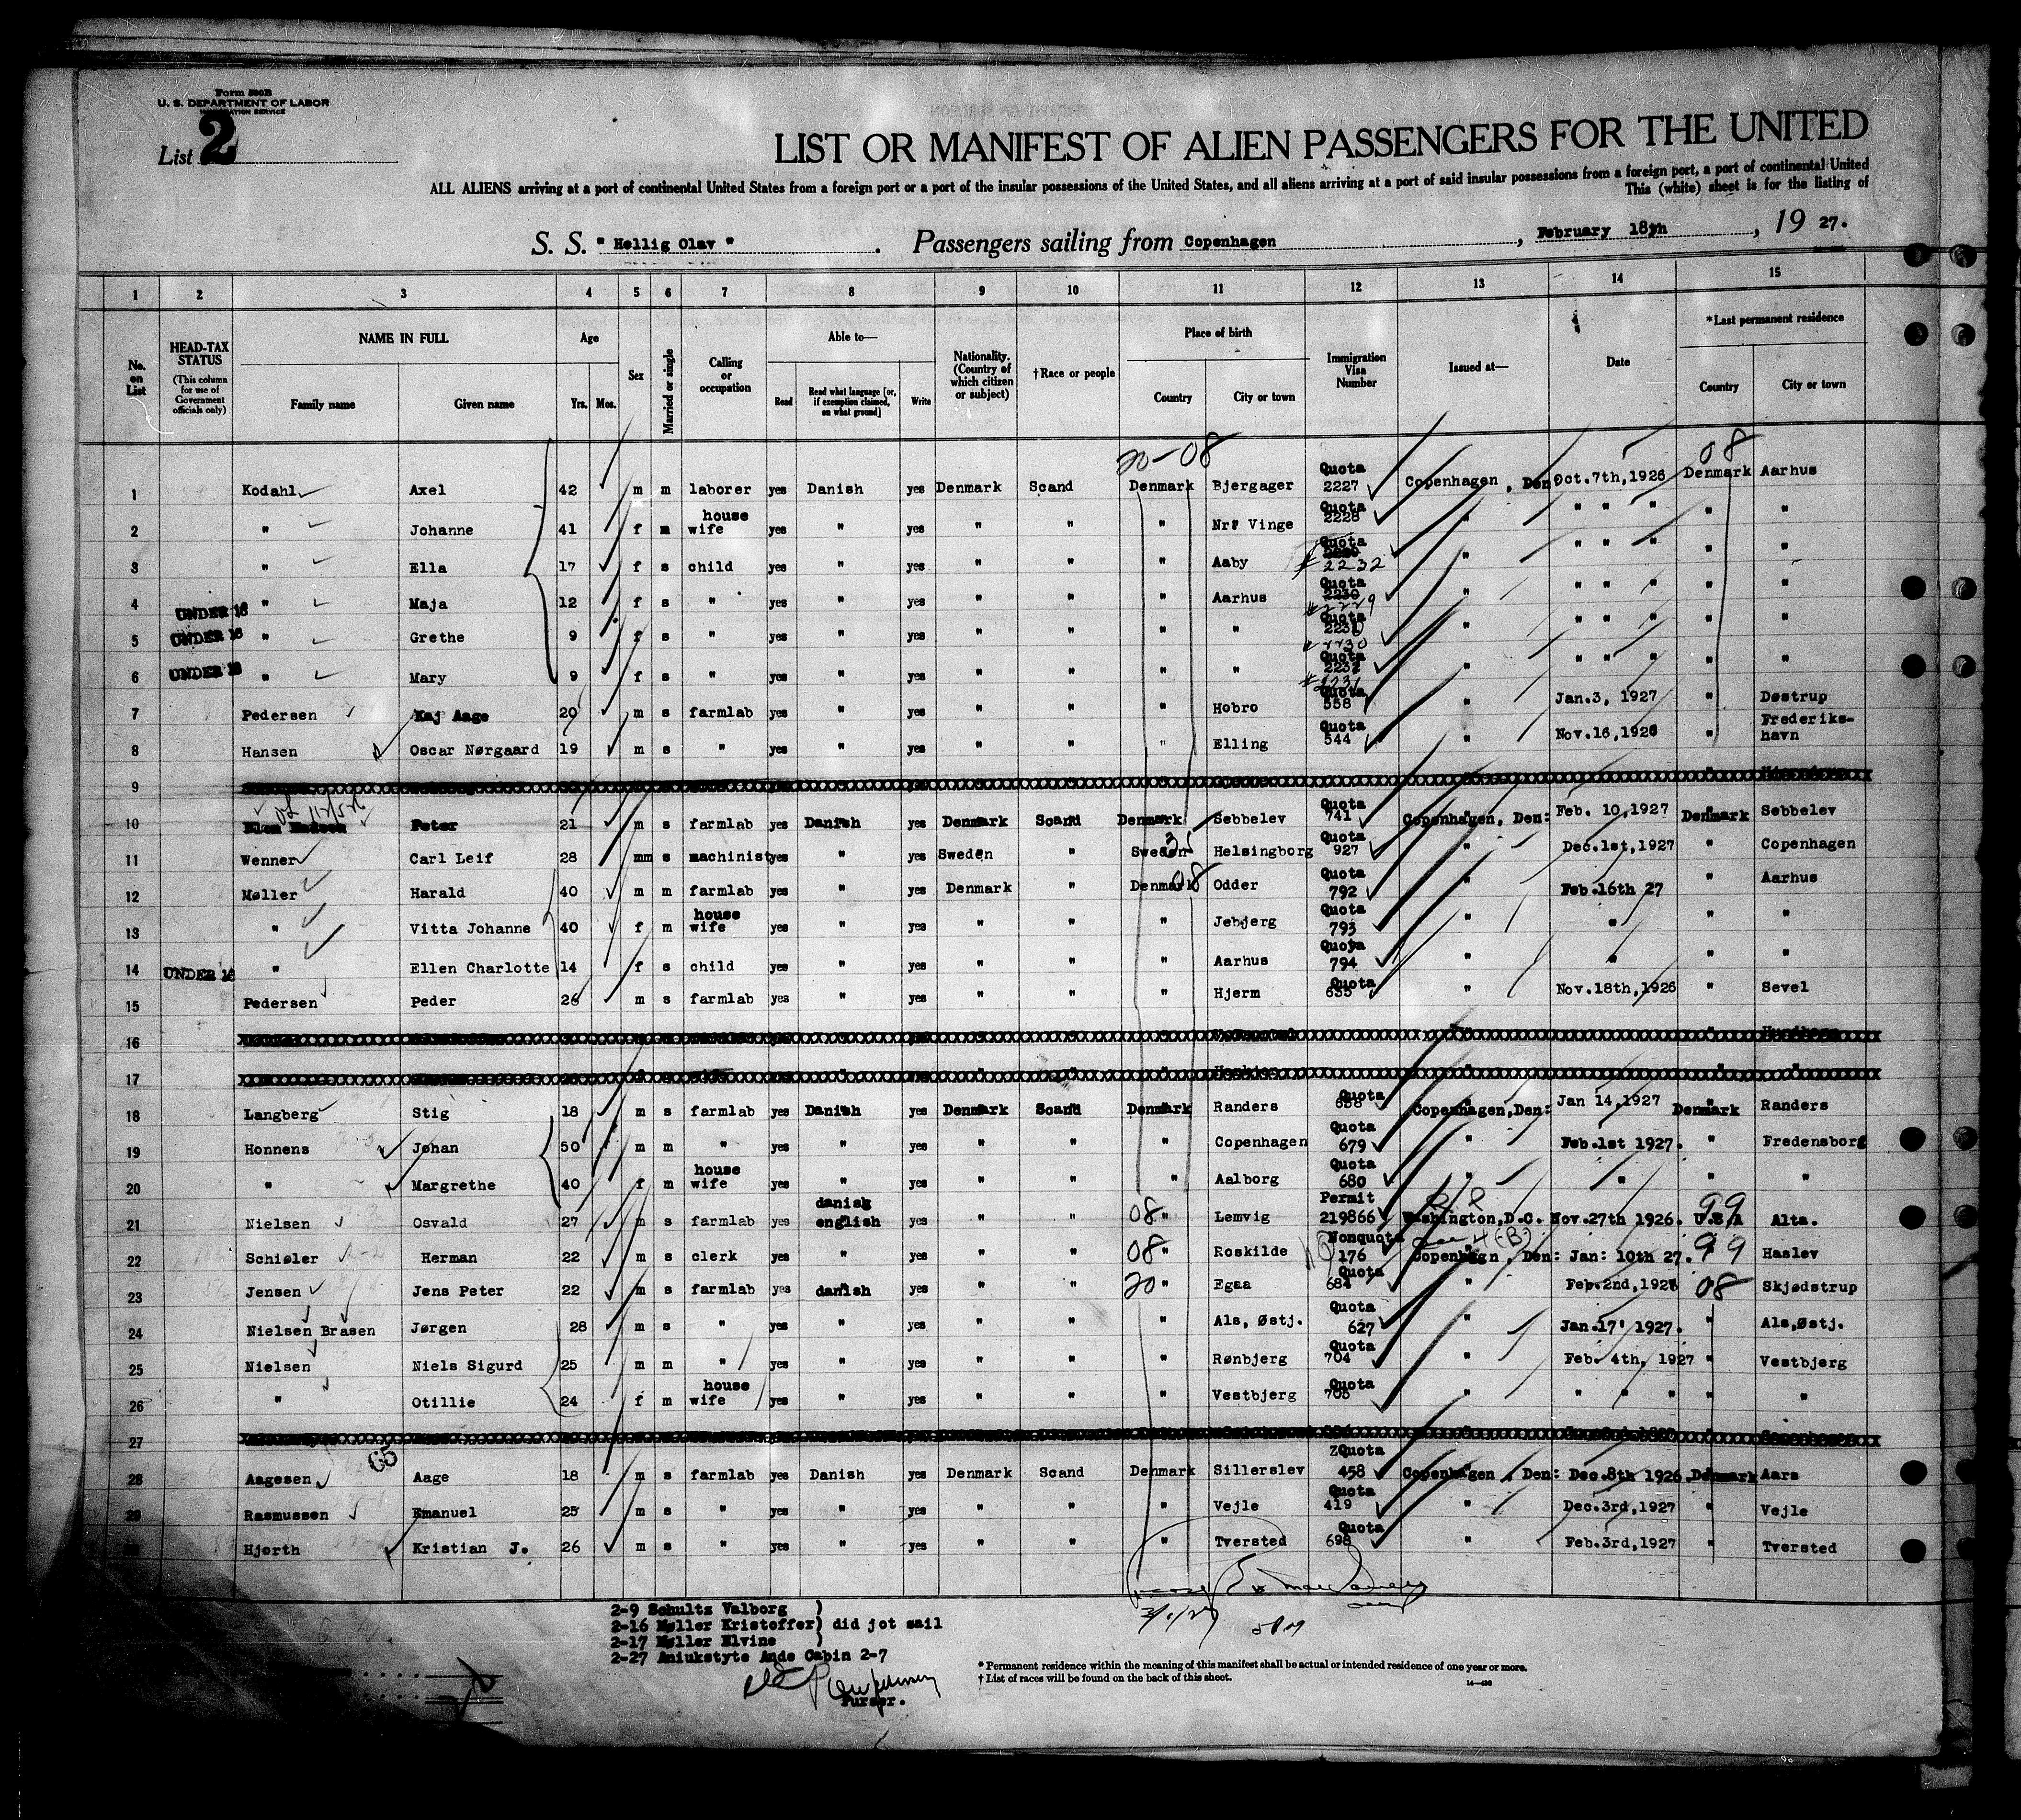 Form 500B
U. S. DEPARTMENT OF LABOR
IMMIGRATION SERVICE
List 2
LIST OR MANIFEST OF ALIEN PASSENGERS FOR THE UNITED
ALL ALIENS arriving at a port of continental United States from a foreign port or a port of the insular possessions of the United States, and all aliens arriving at a port of said insular possessions from a foreign port, a port of continental United
This (white) sheet is for the listing of
S. S. " Hellig Olav " . Passengers sailing from Copenhagen , February 18th , 19 27.
1 2 3 4 5 6 7 8 9 10 11 12 13 14 15
No. on List
HEAD-TAX STATUS (This column for use of Government officials only)
NAME IN FULL Family name Given name
Age Yrs. Mos.
Sex
Married or single
Calling or occupation
Able to— Read Read what language [or, if exemption claimed, on what ground] Write
Nationality. (Country of which citizen or subject)
†Race or people
Place of birth Country City or town
Immigration Visa Number
Issued at—
Date
*Last permanent residence Country City or town
20-08 08
1 Kodahl Axel 42 m m laborer yes Danish yes Denmark Scand Denmark Bjergager Quota 2227 Copenhagen, Den: Oct.7th,1926 Denmark Aarhus
2 " Johanne 41 f m house wife yes " yes " " " Nr. Vinge Quota 2228 " " " " " "
3 " Ella 17 f s child yes " yes " " " Aaby Quota 2232 " " " " " "
4 UNDER 16 " Maja 12 f s " yes " yes " " " Aarhus Quota 2230 2229 " " " " " "
5 UNDER 16 " Grethe 9 f s " yes " yes " " " " Quota 2231 2230 " " " " " "
6 UNDER 16 " Mary 9 f s " yes " yes " " " " Quota 2232 2231 " " " " " "
7 Pedersen Kaj Aage 20 m s farmlab yes " yes " " " Hobro Quota 558 " Jan.3, 1927 " Døstrup
8 Hansen Oscar Nørgaard 19 m s " yes " yes " " " Elling Quota 544 " Nov.16,1926 " Frederiks-havn
9
10 Peter 21 m s farmlab yes Danish yes Denmark Scand Denmark Sebbelev Quota 741 Copenhagen, Den: Feb. 10,1927 Denmark Sebbelev
11 Wenner Carl Leif 28 mm s machinist yes " yes Sweden " Sweden Helsingborg Quota 927 " Dec.1st,1927 " Copenhagen
12 Møller Harald 40 m m farmlab yes " yes Denmark " Denmark 08 Odder Quota 792 " Feb.16th 27 " Aarhus
13 " Vitta Johanne 40 f m house wife yes " yes " " " Jebjerg Quota 793 " " " "
14 UNDER 16 " Ellen Charlotte 14 f s child yes " yes " " " Aarhus Quota 794 " " " "
15 Pedersen Peder 26 m s farmlab yes " yes " " " Hjerm Quota 635 " Nov.18th,1926 " Sevel
16
17
18 Langberg Stig 18 m s farmlab yes Danish yes Denmark Scand Denmark Randers Quota 658 Copenhagen,Den: Jan 14,1927 Denmark Randers
19 Honnens Johan 50 m m " yes " yes " " " Copenhagen Quota 679 " Feb.1st 1927. " Fredensborg
20 " Margrethe 40 f m house wife yes " yes " " " Aalborg Quota 680 " " " "
21 Nielsen Osvald 27 m s farmlab yes danish english yes " " 08 " Lemvig Permit 219866 Washington,D.C. Nov.27th 1926. 99 U.S.A Alta.
22 Schiøler Herman 22 m s clerk yes " yes " " 08 " Roskilde Nonquota 176 Copenhagen, Den: Jan: 10th 27. 99 Haslev
23 Jensen Jens Peter 22 m s farmlab yes danish yes " " 20 " Egaa Quota 684 " Feb.2nd,1927 08 Skjødstrup
24 Nielsen Brasen Jørgen 28 m s " yes " yes " " " Als, Østj. Quota 627 " Jan.17' 1927. " Als,Østj.
25 Nielsen Niels Sigurd 25 m m " yes " yes " " " Rønbjerg Quota 704 " Feb. 4th, 1927 " Vestbjerg
26 " Otillie 24 f m house wife yes " yes " " " Vestbjerg Quota 705 " " " " " "
27
28 Aagesen Aage 18 m s farmlab yes Danish yes Denmark Scand Denmark Sillerslev Quota 458 Copenhagen, Den: Dec.8th 1926. Denmark Aars
29 Rasmussen Emanuel 25 m s " yes " yes " " " Vejle Quota 419 " Dec.3rd,1927 " Vejle
Hjorth Kristian J. 26 m s " yes " yes " " " Tversted Quota 698 " Feb.3rd,1927 " Tversted
2-9 Schultz Valborg )
2-16 Møller Kristoffer) did jot sail
2-17 Møller Elvine )
2-27 Aniukstyte Ande Cabin 2-7
Purser.
* Permanent residence within the meaning of this manifest shall be actual or intended residence of one year or more.
† List of races will be found on the back of this sheet.